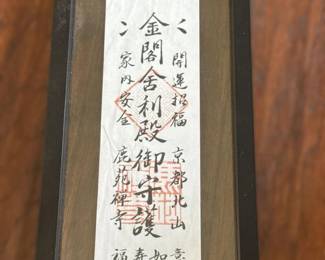 開運招福 京都北山
意
如
金閣舎利殿御守護
寿
家内安全 鹿苑禅寺
福